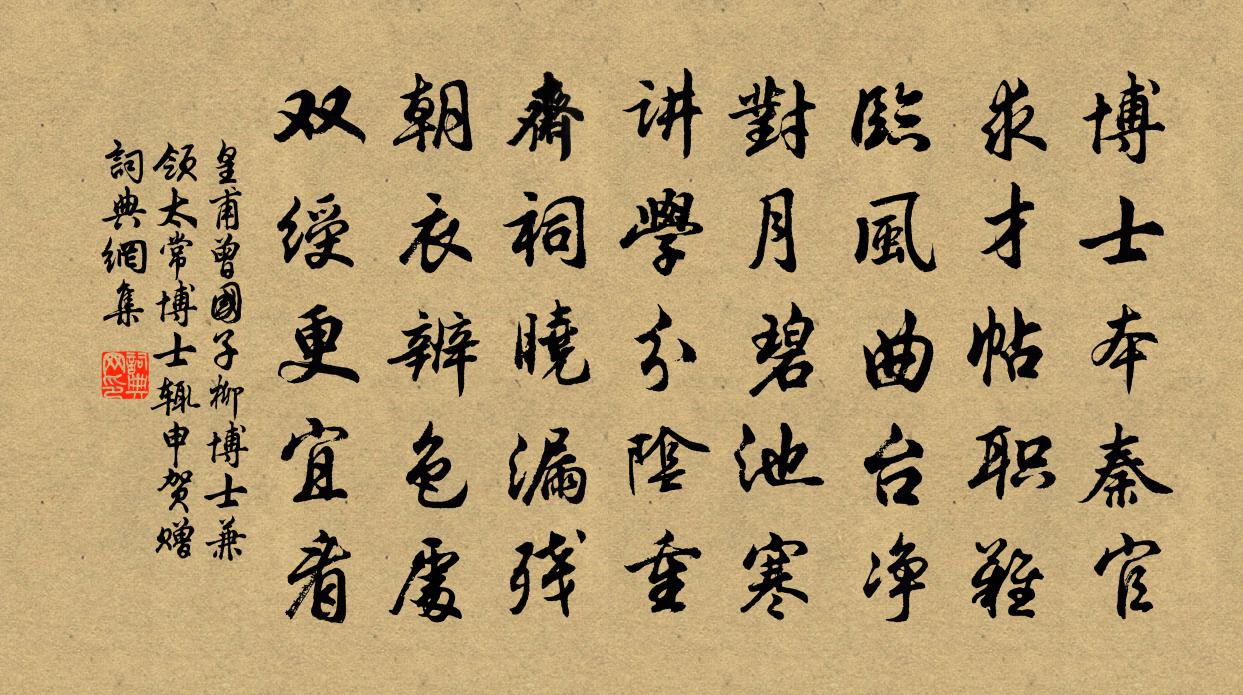 博士本秦官
求才帖职難
臨風曲台净
對月碧池寒
讲學分陰重
齋祠曉漏残
朝衣辨色處
双绶更宜看
皇甫曾國子柳博士兼
领太常博士辄申贺赠
詞典網集